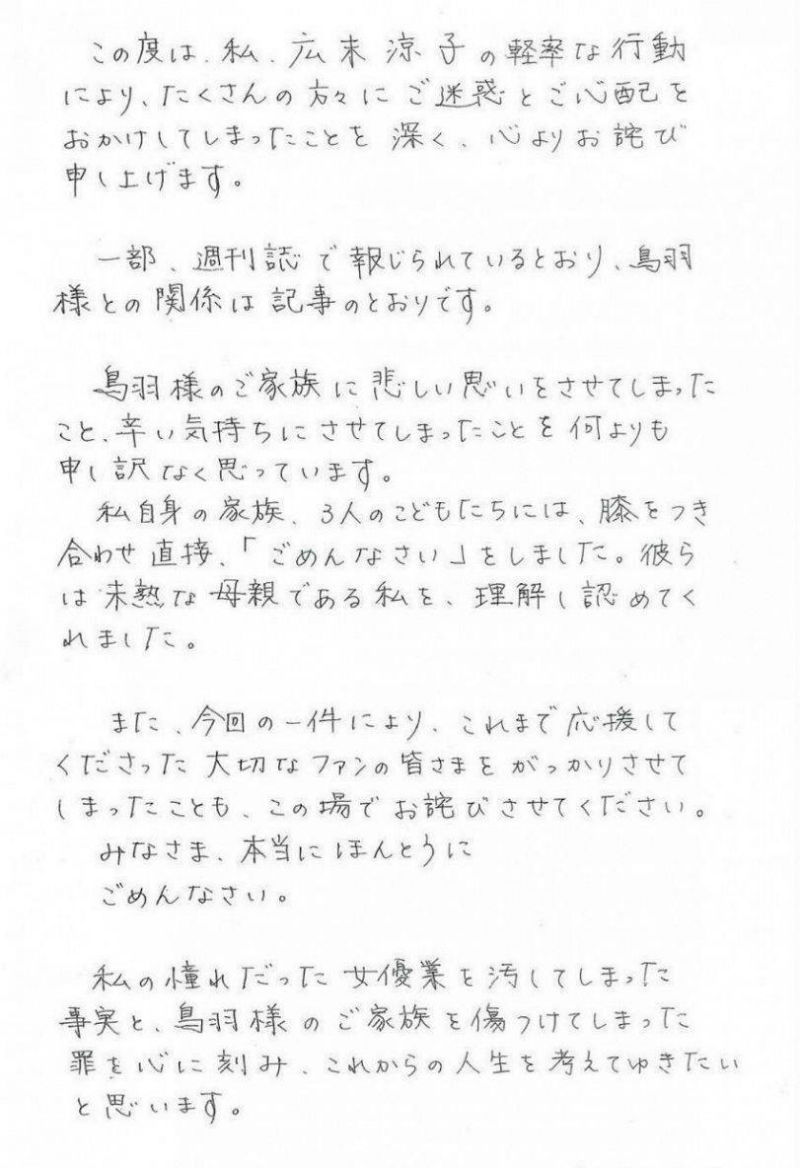 この度は、私、広末涼子の軽率な行動
により、たくさんの方々にご迷惑とご心配を
おかけしてしまったことを深く、心よりお詫び
申し上げます。
一部、週刊誌で報じられているとおり、鳥羽
様との関係は記事のとおりです。
鳥羽様のご家族に悲しい思いをさせてしまった
こと、辛い気持ちにさせてしまったことを何よりも
申し訳なく思っています。
私自身の家族、3人のこどもたちには、膝をつき
合わせ直接、「ごめんなさい」をしました。彼ら
は未熟な母親である私を、理解し認めてく
れました。
また、今回の一件により、これまで応援して
くださった大切なファンの皆さまをがっかりさせて
しまったことも、この場でお詫びさせてください。
みなさま、本当にほんとうに
ごめんなさい。
私の憧れだった女優業を汚してしまった
事実と、鳥羽様のご家族を傷つけてしまった
罪を心に刻み、これからの人生を考えてゆきたい
と思います。